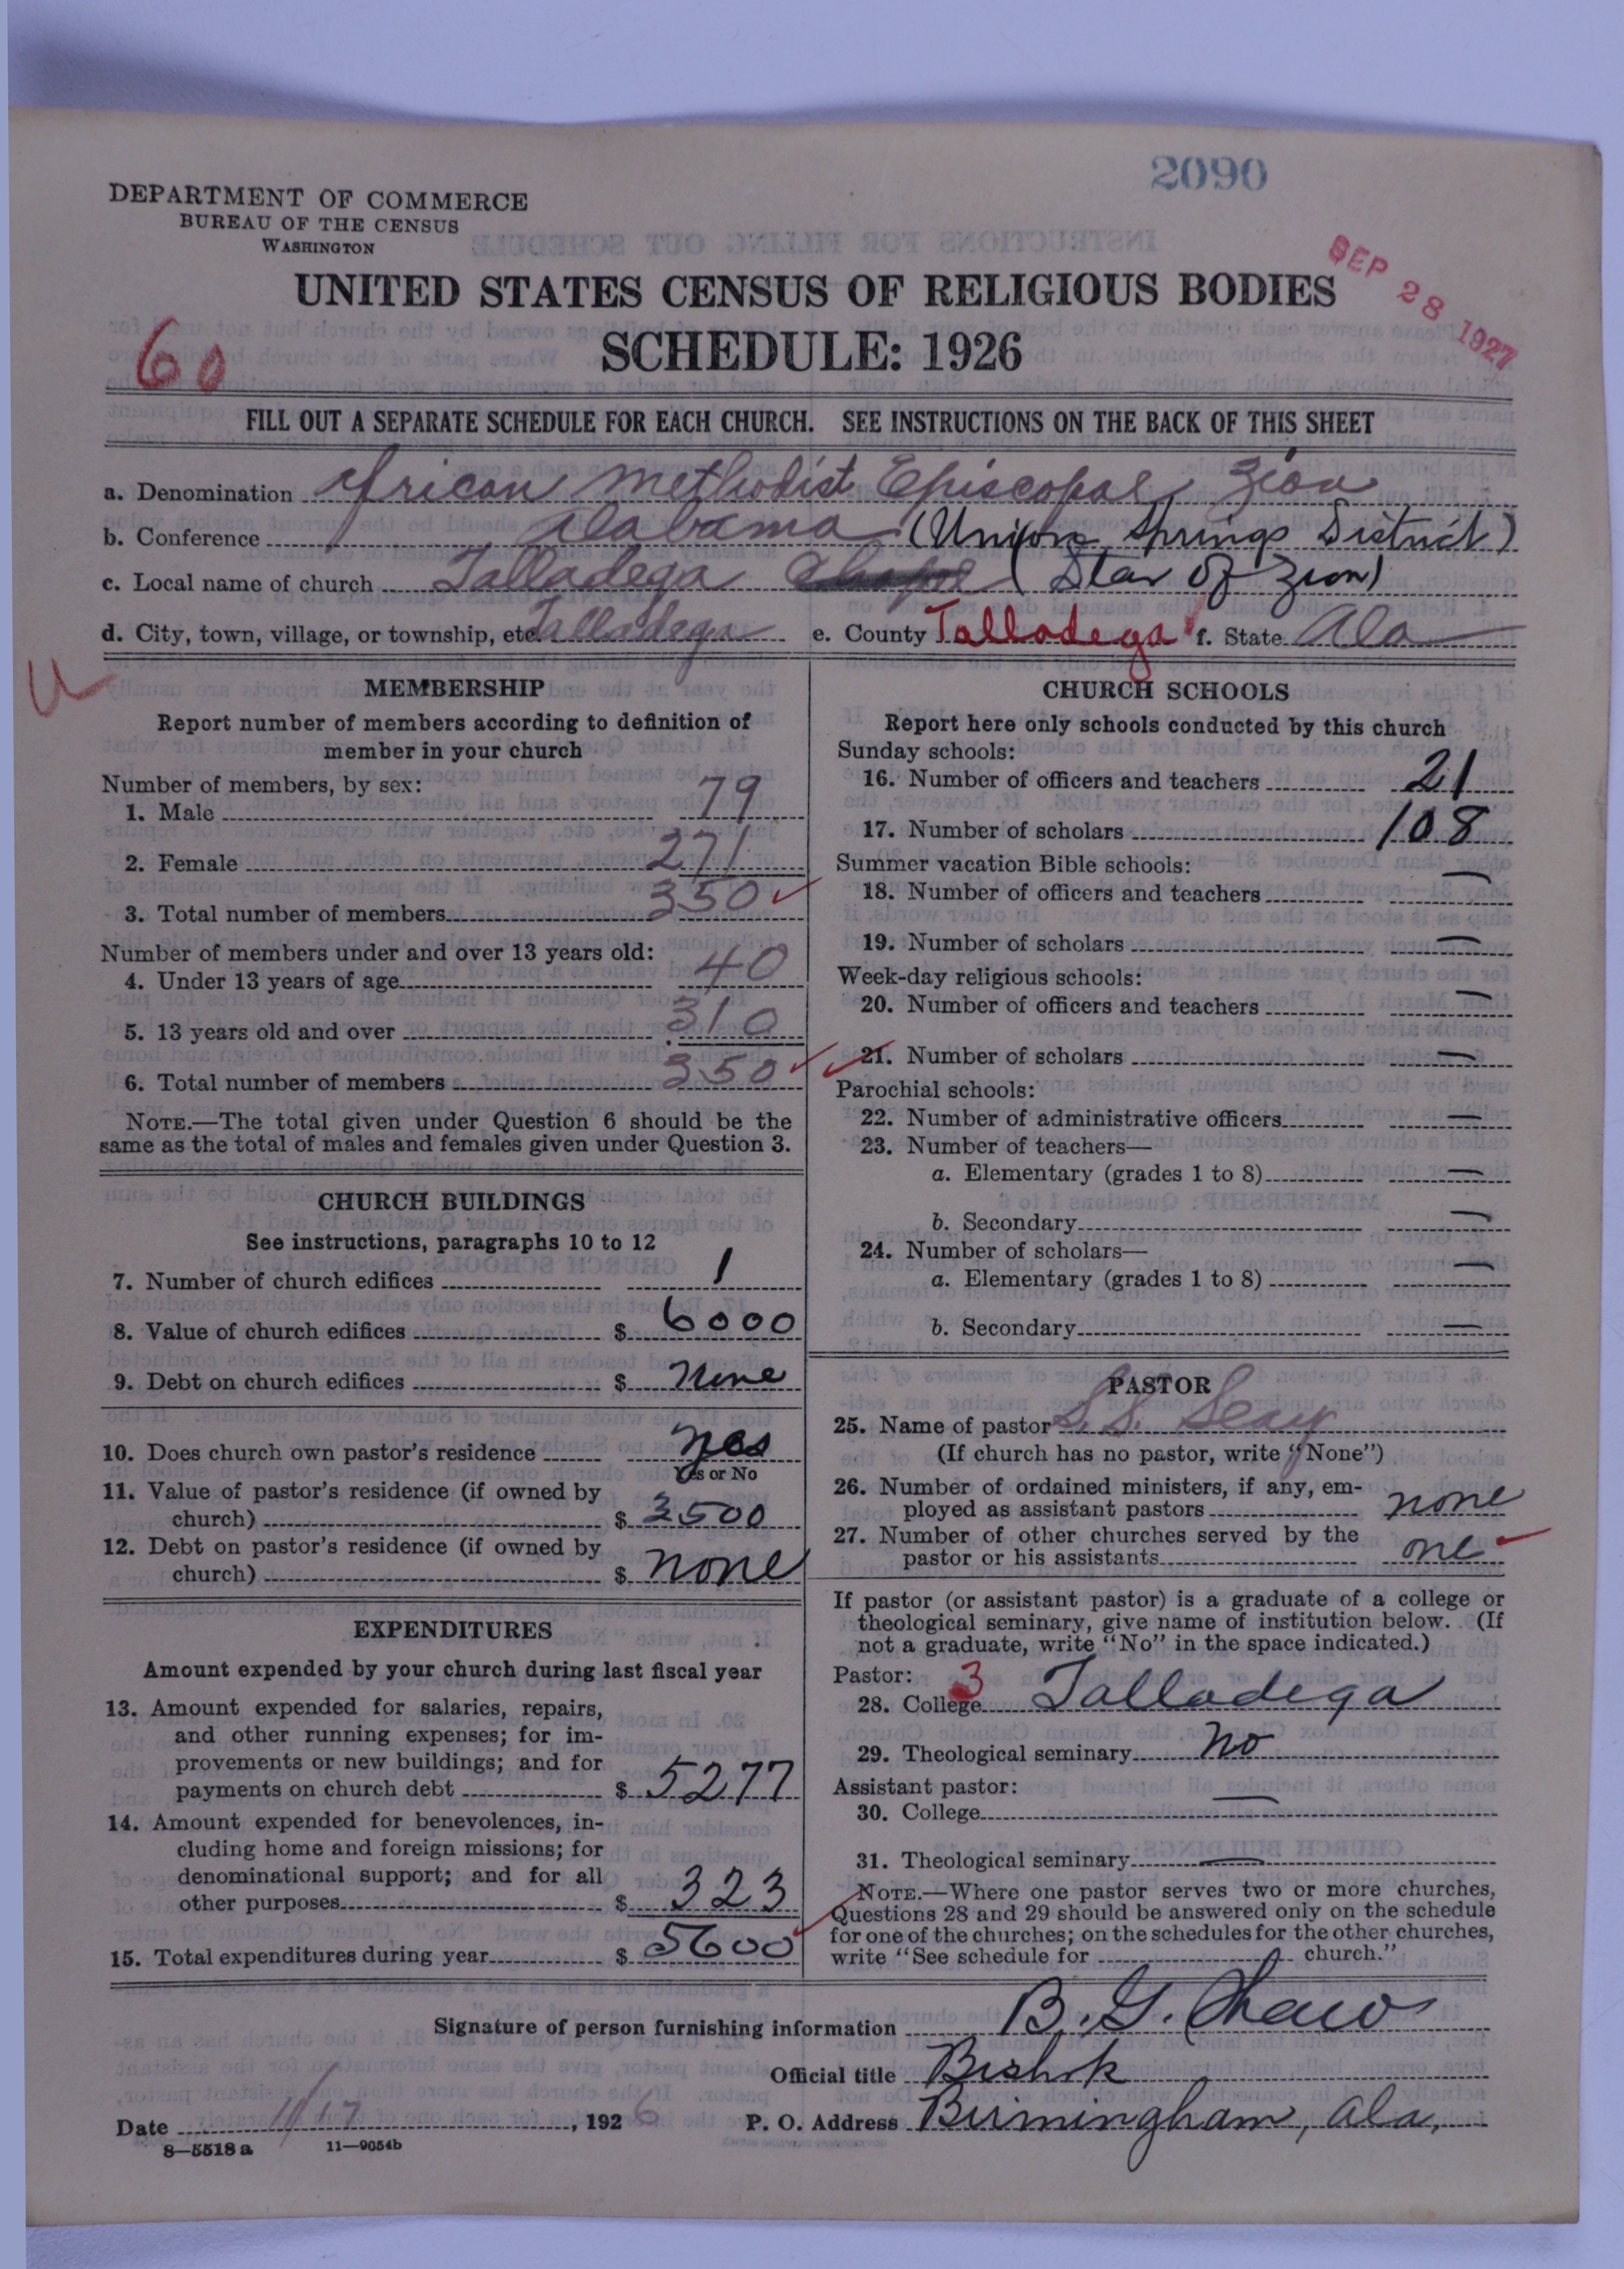 2090
DEPARTMENT OF COMMERCE
BUREAU OF THE CENSUS
WASHINGTON
SEP 28 1927
UNITED STATES CENSUS OF RELIGIOUS BODIES
60
SCHEDULE: 1926
FILL OUT A SEPARATE SCHEDULE FOR EACH CHURCH. SEE INSTRUCTIONS ON THE BACK OF THIS SHEET
a. Denomination African Methodist Episcopal Zion
b. Conference Alabama (Union Springs District)
c. Local name of church Talladega (Star of Zion)
d. City, town, village, or township, etc. Talladega e. County Talladega f. State Ala
MEMBERSHIP
Report number of members according to definition of
member in your church
Number of members, by sex:
1. Male 79
2. Female 271
3. Total number of members 350
Number of members under and over 13 years old:
4. Under 13 years of age 40
5. 13 years old and over 310
6. Total number of members 350
NOTE.—The total given under Question 6 should be the
same as the total of males and females given under Question 3.
CHURCH BUILDINGS
See instructions, paragraphs 10 to 12
7. Number of church edifices 1
8. Value of church edifices $ 6000
9. Debt on church edifices $ None
10. Does church own pastor's residence yes
Yes or No
11. Value of pastor's residence (if owned by
church) $ 3500
12. Debt on pastor's residence (if owned by
church) $ none
EXPENDITURES
Amount expended by your church during last fiscal year
13. Amount expended for salaries, repairs,
and other running expenses; for im-
provements or new buildings; and for
payments on church debt $ 5277
14. Amount expended for benevolences, in-
cluding home and foreign missions; for
denominational support; and for all
other purposes $ 323
15. Total expenditures during year $ 5600
CHURCH SCHOOLS
Report here only schools conducted by this church
Sunday schools:
16. Number of officers and teachers 21
17. Number of scholars 108
Summer vacation Bible schools:
18. Number of officers and teachers —
19. Number of scholars —
Week-day religious schools:
20. Number of officers and teachers —
21. Number of scholars —
Parochial schools:
22. Number of administrative officers —
23. Number of teachers—
a. Elementary (grades 1 to 8) —
b. Secondary —
24. Number of scholars—
a. Elementary (grades 1 to 8) —
b. Secondary —
PASTOR
25. Name of pastor S. S. Seay
(If church has no pastor, write "None")
26. Number of ordained ministers, if any, em-
ployed as assistant pastors none
27. Number of other churches served by the
pastor or his assistants one
If pastor (or assistant pastor) is a graduate of a college or
theological seminary, give name of institution below. (If
not a graduate, write "No" in the space indicated.)
Pastor: 3
28. College Talladega
29. Theological seminary No
Assistant pastor:
30. College —
31. Theological seminary —
NOTE.—Where one pastor serves two or more churches,
Questions 28 and 29 should be answered only on the schedule
for one of the churches; on the schedules for the other churches,
write "See schedule for church."
Signature of person furnishing information B. G. Shaw
Official title Bishop
Date 11/17, 1926 P. O. Address Birmingham, Ala,
8—5518a 11—9054b